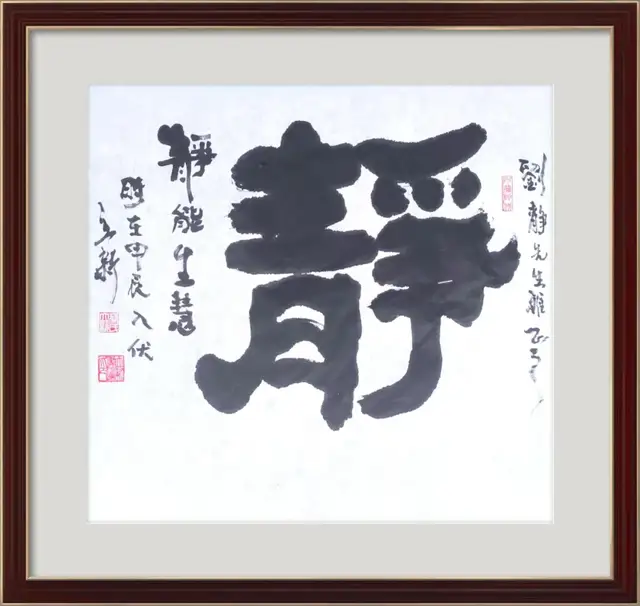 劉靜先生雅正
靜
靜能生慧
時在甲辰入伏